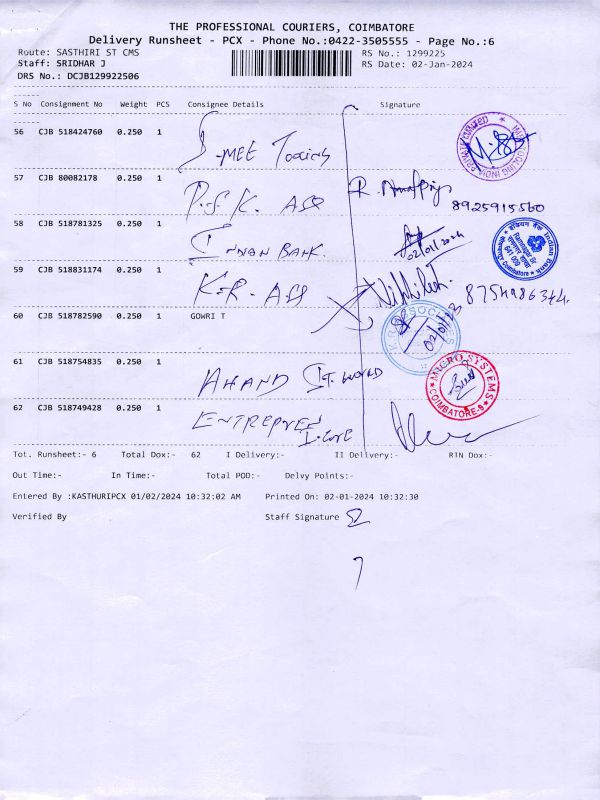 THE PROFESSIONAL COURIERS, COIMBATORE
Delivery Runsheet - PCX - Phone No.:0422-3505555 - Page No.:6
Route: SASTHIRI ST CMS RS No.: 1299225
Staff: SRIDHAR J RS Date: 02-Jan-2024
DRS No.: DCJB129922506
S No Consignment No Weight PCS Consignee Details Signature
56 CJB 518424760 0.250 1
-MEE
57 CJB 80082178 0.250 1
8925915560
58 CJB 518781325 0.250 1
INDIAN BANK.
02/01/2024
59 CJB 518831174 0.250 1
K.R. ASS
8754986344.
60 CJB 518782590 1 GOWRI T
02/01/23
61 CJB 518754835 0.250 1
ANAND WORLD
MICRO SYSTEMS
COIMBATORE-9
62 CJB 518749428 0.250 1
Tot. Runsheet:- 6 Total Dox:- 62 I Delivery:- II Delivery:- RTN Dox:-
Out Time:- In Time:- Total POD:- Delvy Points:-
Entered By :KASTHURIPCX 01/02/2024 10:32:02 AM Printed On: 02-01-2024 10:32:30
Verified By Staff Signature